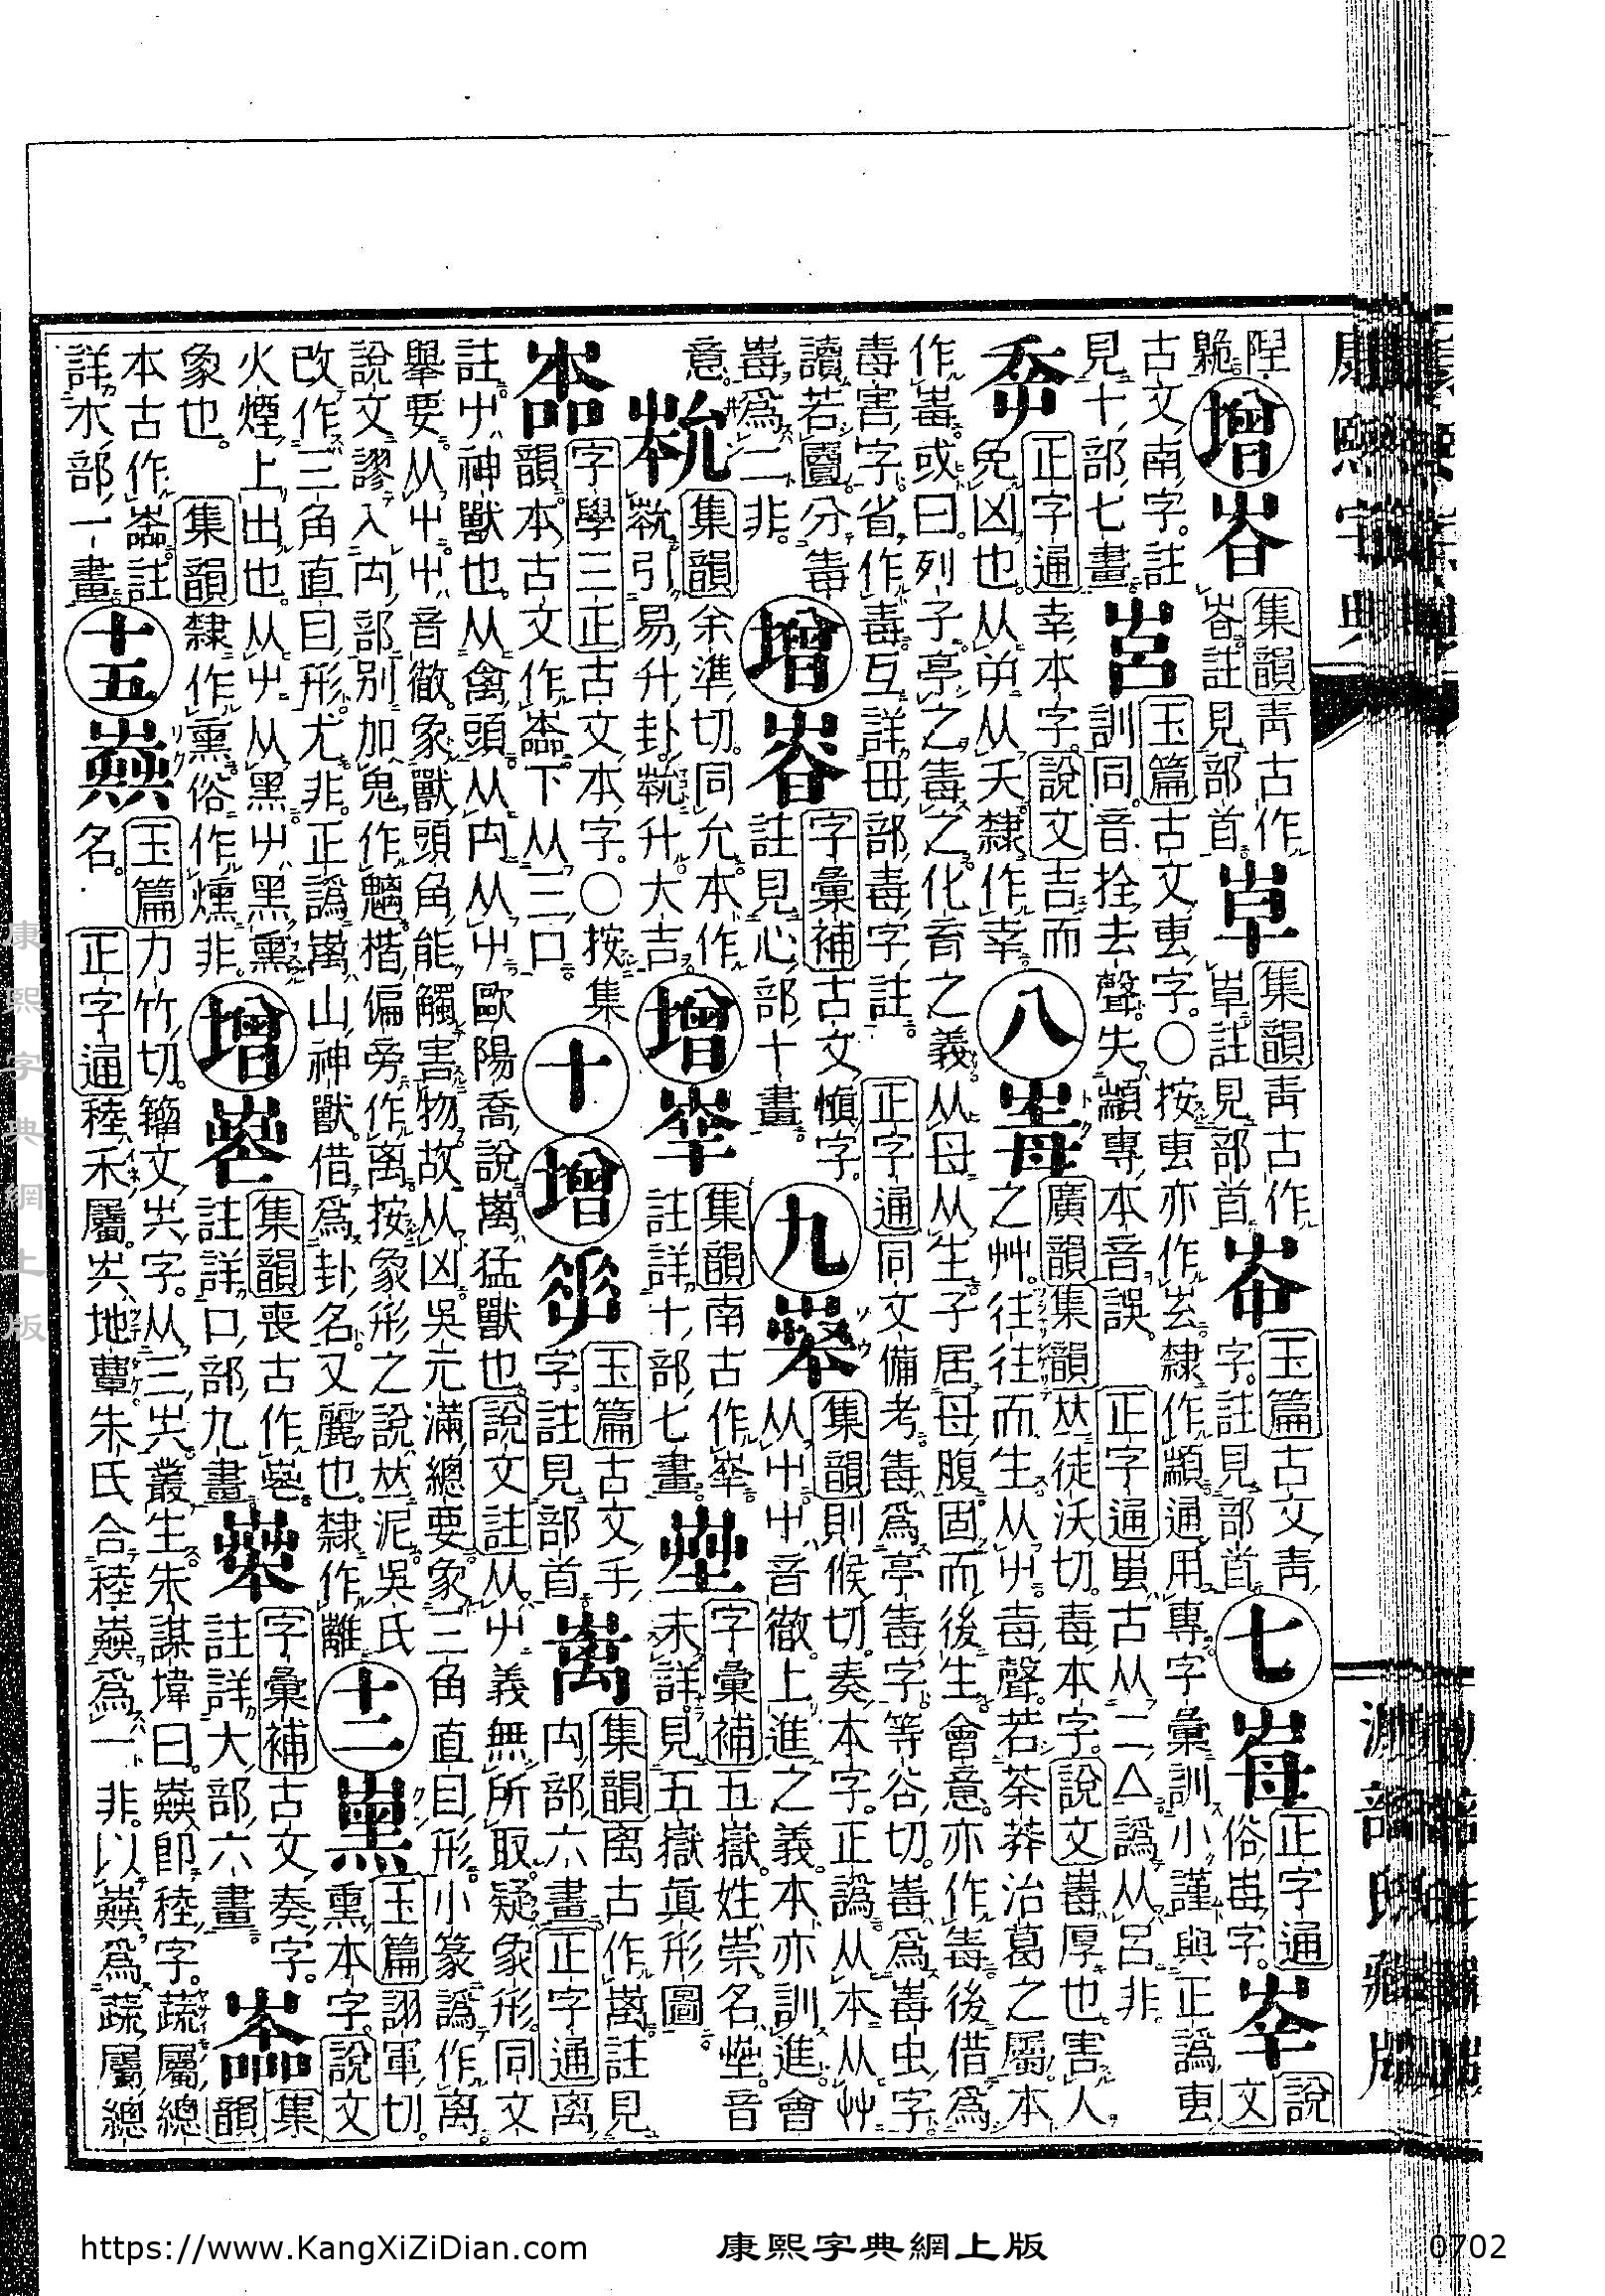 康熙字典
陧臲。增 集韻青古作 註見部首。 集韻青古作 註見部首。 玉篇古文青字。註見部首。七 正字通俗毒字。 說文
古文南字。註見十部七畫。 玉篇古文叀字。○按叀亦作 隸作顓通用專字彙訓小謹與正譌叀訓同。音拴去聲失。顓專本音誤。正字通 古从二厶譌从呂非
㚔 正字通幸本字。說文吉而免凶也。从屰从夭隸作幸。八 廣韻集韻𠀤徒沃切。毒本字。說文 厚也。害人之艸。往往而生。从屮毐聲。若荼莽治葛之屬本
作 。或曰列子亭之毒之化育之義从母从生。子居母腹固而後生會意。亦作毒後借爲毒害字省作毒。互詳毋部毒字註。正字通同文備考 爲亭毒字等谷切。 爲 虫字
讀若 分 爲二非。增 字彙補古文愼字。註見心部十畫。九 集韻則候切。奏本字。正譌从本从艸从屮屮音徹上進之義。本亦訓進。會
意。 集韻余準切。同允。本作 引易升卦 升大吉。增 集韻南古作 註詳十部七畫。 字彙補五嶽姓崇名 。音未詳。見五嶽眞形圖
字學三正古文本字。○按集韻本古文作 下从三口。十 增 玉篇古文手字。註見部首 集韻离古作 註見禸部六畫 正字通离
註屮神獸也。从禽頭。从禸从屮歐陽喬說 猛獸也。說文註从屮義無所取疑象形。同文舉要。从屮。屮音徹。象獸頭角能觸害物故从凶吳元滿總要象三角直目形。小篆譌作离。
說文謬入禸部別加鬼作魑。楷偏旁作离。按象形之說𠀤泥。吳氏改作三角直目形。尤非。正譌 山神獸。借爲卦名。又麗也。隸作離 十二 玉篇詡軍切。熏本字。說文
火煙上出也。从屮从黑屮黑熏象也。集韻隸作熏。俗作燻非。增 集韻喪古作 。註詳口部九畫 字彙補古文奏字。註詳大部六畫。 集韻
本古作 。註詳木部一畫 十五 玉篇力竹切。籀文 字。从三 。叢生朱謀㙔曰。 卽稑字。蔬屬總名。正字通稑禾屬。 地蕈朱氏合稑 爲一非。以 爲蔬屬總
康熙字典網上版
https://www.KangXiZiDian.com
康熙字典網上版
0702